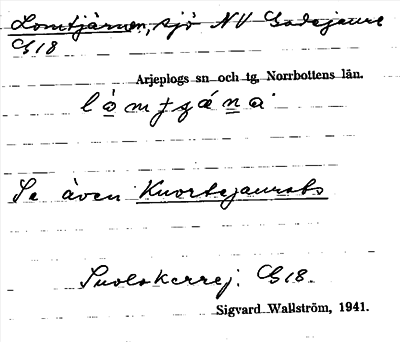 Lomtjärnen, sjö NV Gadejaure
G18
Arjeplogs sn och tg, Norrbottens län.
Se även Kuortejaurats
Suolokerrej. G18.
Sigvard Wallström, 1941.